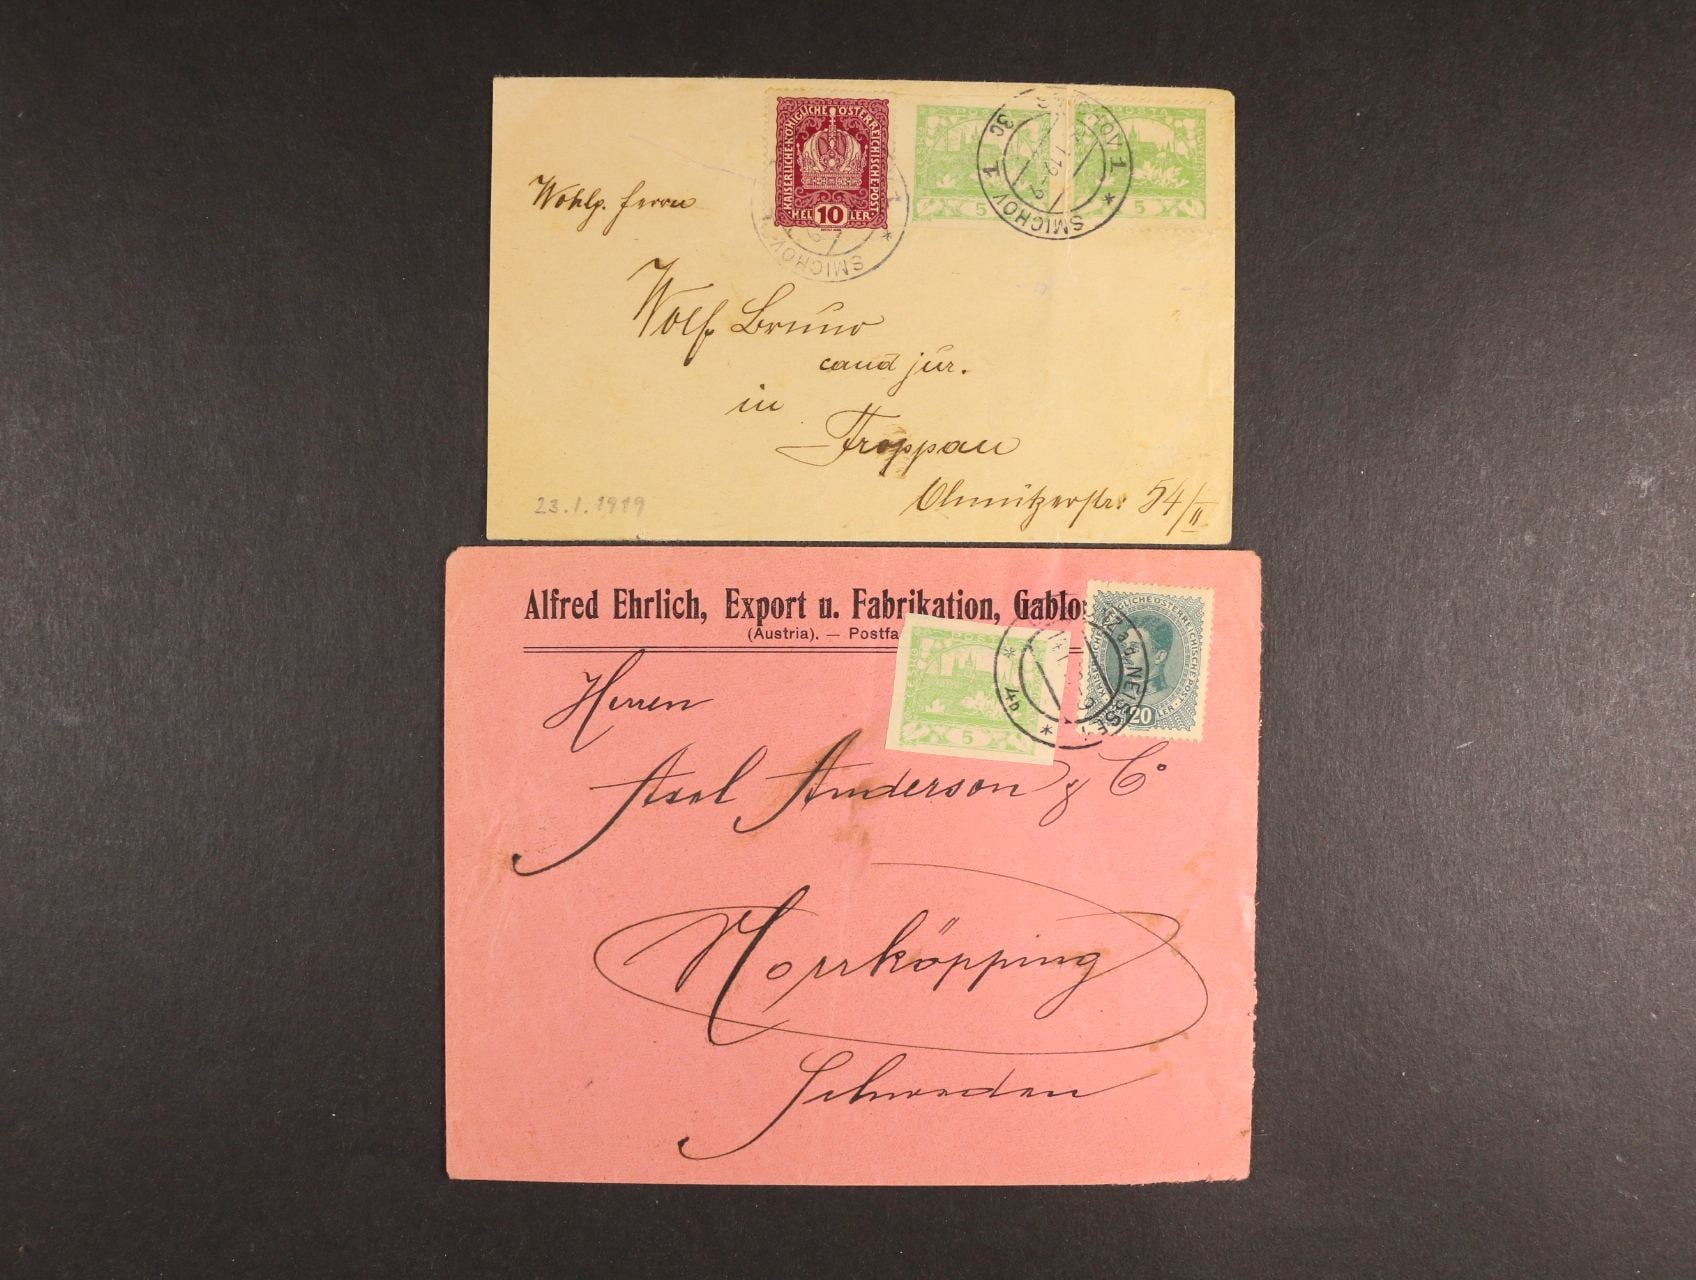 KAISERLICHE·KÖNIGLICHE·ÖSTERREICHISCHE·POST
HELLER
10
SMICHOV
1
POSTA
5
POSTA
5
SMICHOV 1
3c
SMICHOV 1
Wohlg. Herrn
Wolf Bruno
cand jur.
in
Troppau
Olmützerstr. 54/II
23.1.1919
Alfred Ehrlich, Export u. Fabrikation, Gablo
(Austria). — Postfa
POSTA
5
ÖSTERREICHISCHE POST
20
NEISSE
4b
Herren
Axel Anderson & Co
Norrköpping
Schweden